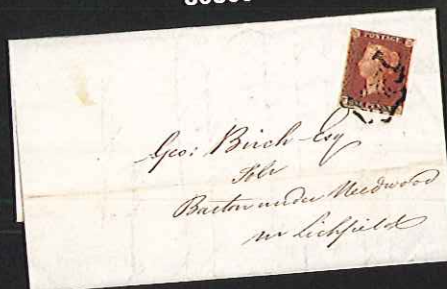 POSTAGE
Geo: Birch Esq
Solr
Barton under Needwood
nr Lichfield